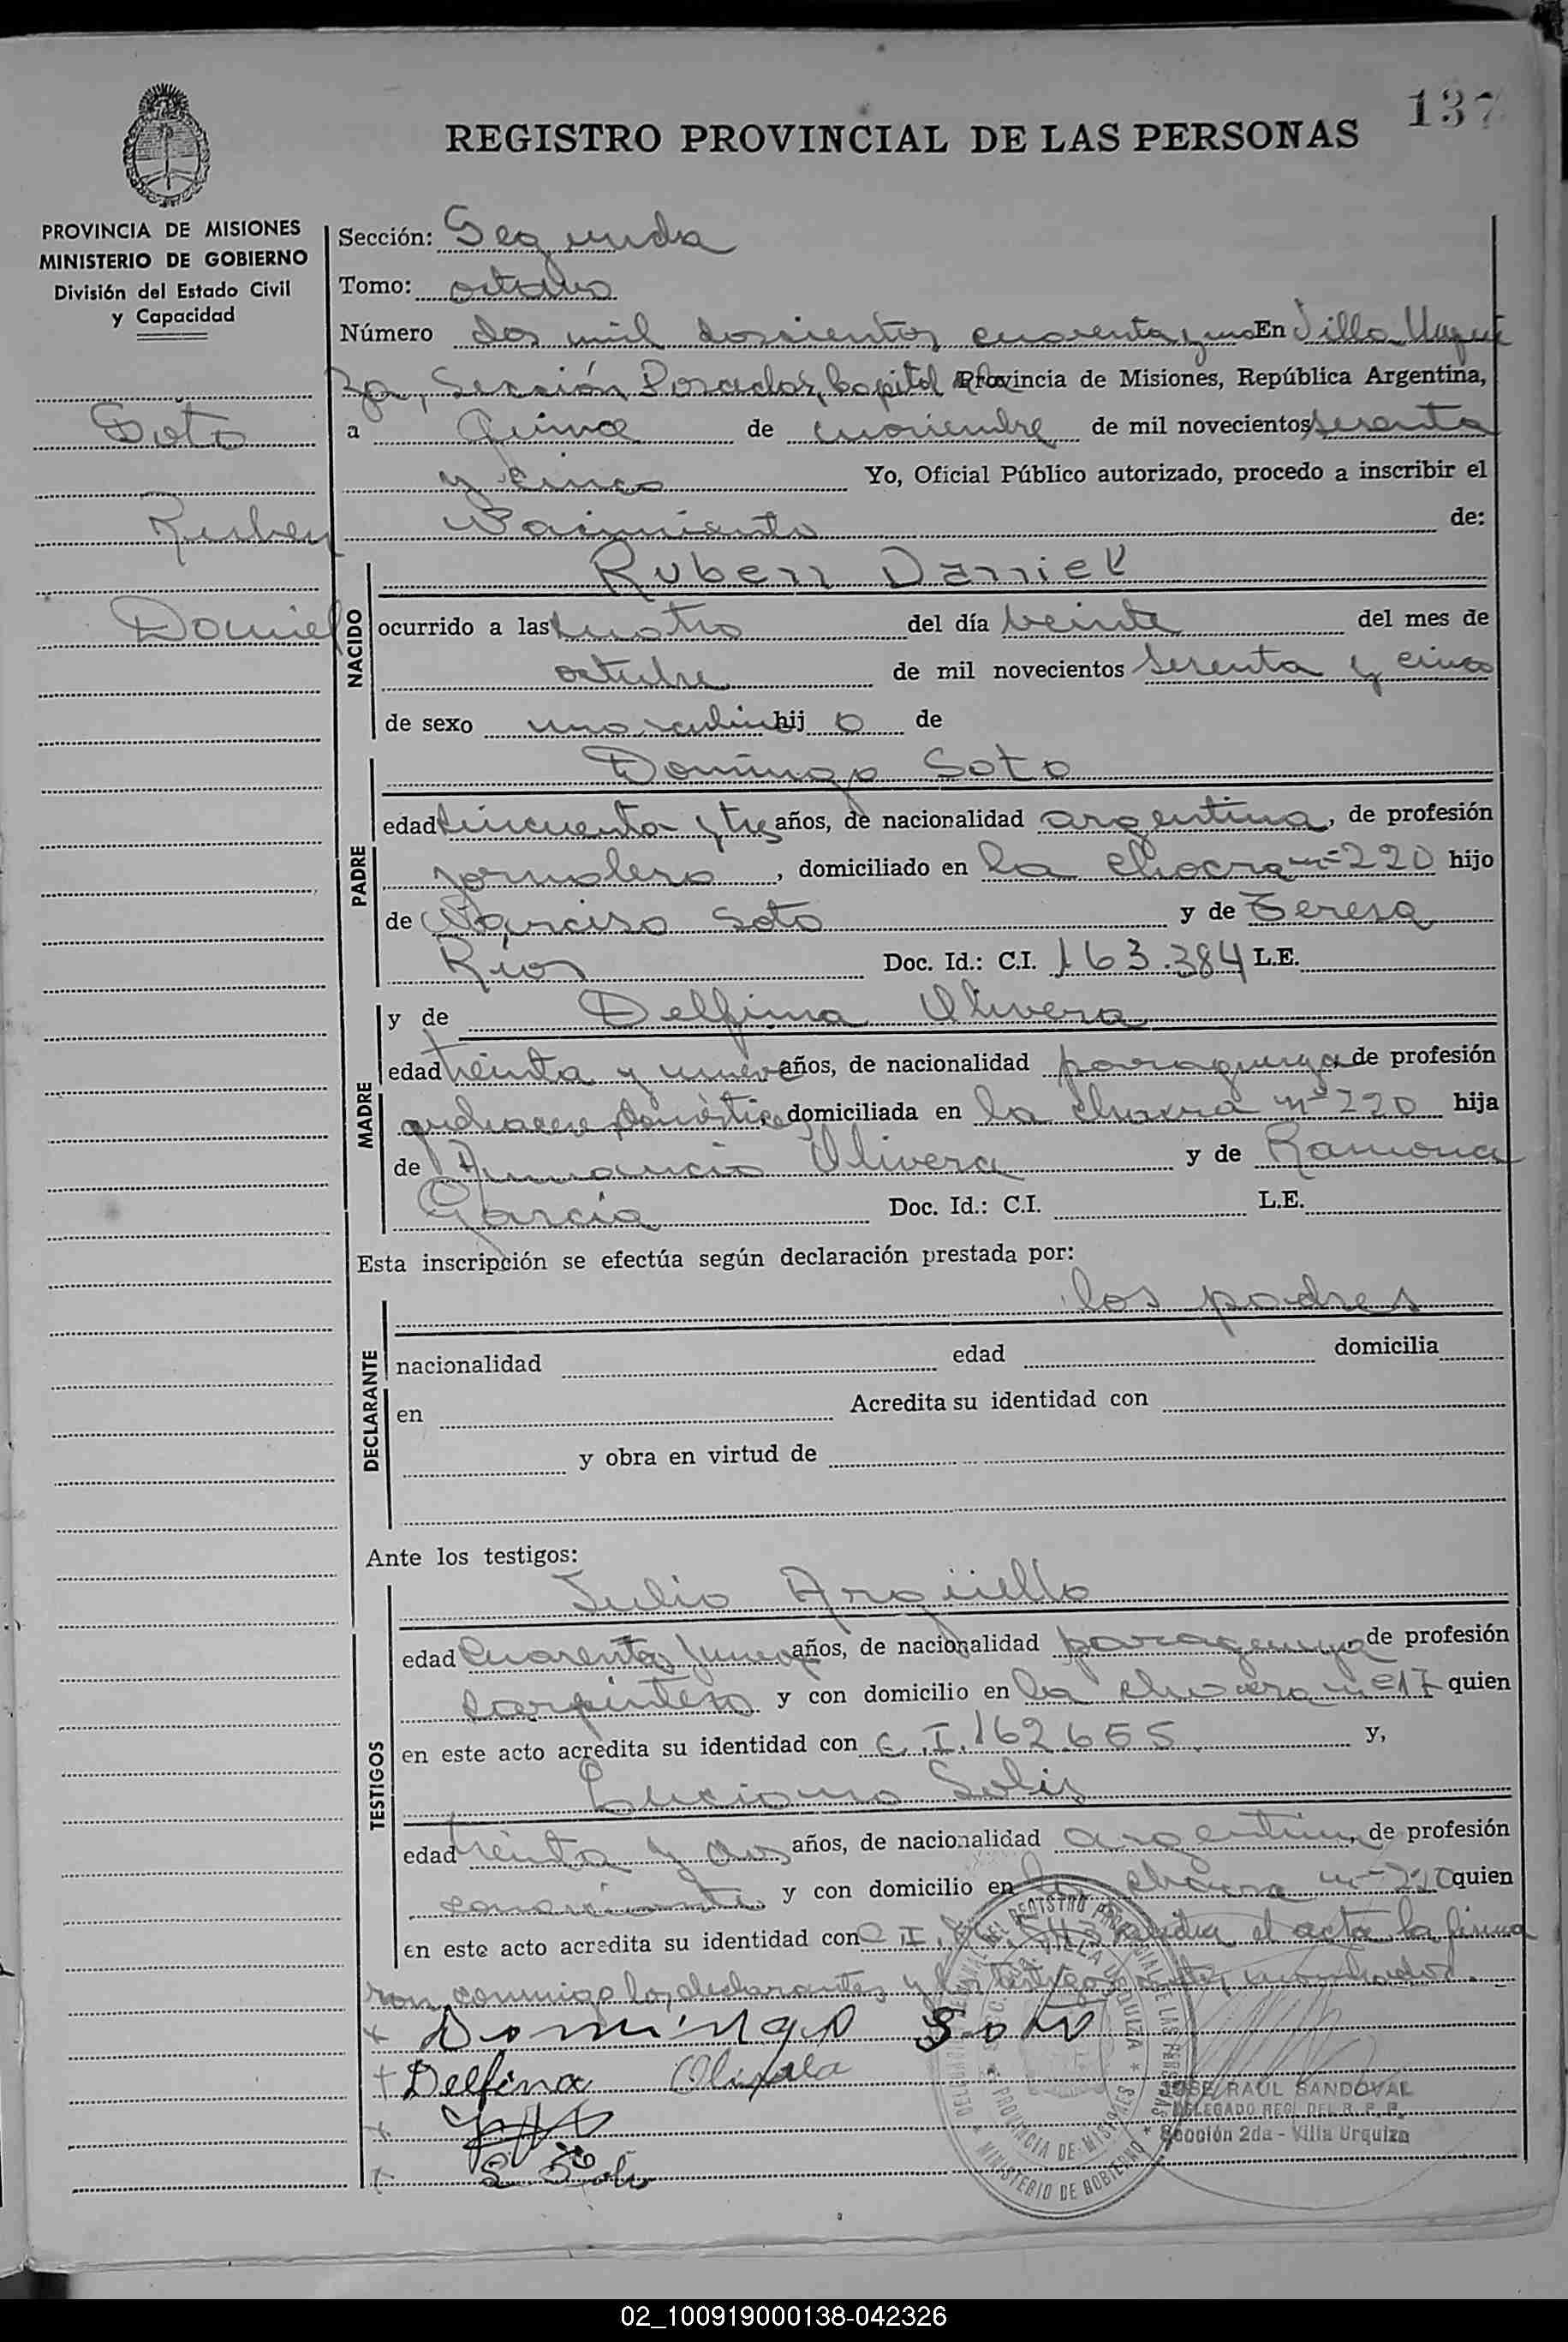 137
REGISTRO PROVINCIAL DE LAS PERSONAS
PROVINCIA DE MISIONES
MINISTERIO DE GOBIERNO
División del Estado Civil
y Capacidad
Soto
Ruben
Daniel
Sección: Segunda
Tomo: octavo
Número dos mil doscientos cuarenta y uno En Villa Urqui
za, Sección Posadas, Capital Provincia de Misiones, República Argentina,
a quince de noviembre de mil novecientos sesenta
y cinco Yo, Oficial Público autorizado, procedo a inscribir el
Nacimiento de:
NACIDO
Ruben Daniel
ocurrido a las cuatro del día veinte del mes de
octubre de mil novecientos sesenta y cinco
de sexo masculino hij o de
PADRE
Domingo Soto
edad cincuenta y tres años, de nacionalidad argentina, de profesión
jornalero, domiciliado en la chacra nº 220 hijo
de Narciso Soto y de Teresa
Ríos Doc. Id.: C.I. 163.384 L.E.
MADRE
y de Delfina Olivera
edad treinta y nueve años, de nacionalidad paraguaya de profesión
quehacere doméstico domiciliada en la chacra nº 220 hija
de Amancio Olivera y de Ramona
García Doc. Id.: C.I. L.E.
Esta inscripción se efectúa según declaración prestada por:
DECLARANTE
los padres
nacionalidad edad domicilia
en Acredita su identidad con
y obra en virtud de
Ante los testigos:
TESTIGOS
Julio Argüello
edad cuarenta y nueve años, de nacionalidad paraguaya de profesión
carpintero y con domicilio en la chacra nº 17 quien
en este acto acredita su identidad con C.I. 162.655 y,
Luciano Solis
edad treinta y dos años, de nacionalidad argentina, de profesión
comerciante y con domicilio en la chacra nº quien
en este acto acredita su identidad con C.I. el acta, la firma
ron conmigo los declarantes y los testigos antes nombrados.
x Domingo Soto
+ Delfina
x
x
DELEGACION REGIONAL DEL REGISTRO PROVINCIAL DE LAS PERSONAS
VILLA URQUIZA
PROVINCIA DE MISIONES
MINISTERIO DE GOBIERNO
JOSE RAUL SANDOVAL
DELEGADO REG. DEL R. P. P.
Sección 2da - Villa Urquiza
02_100919000138-042326